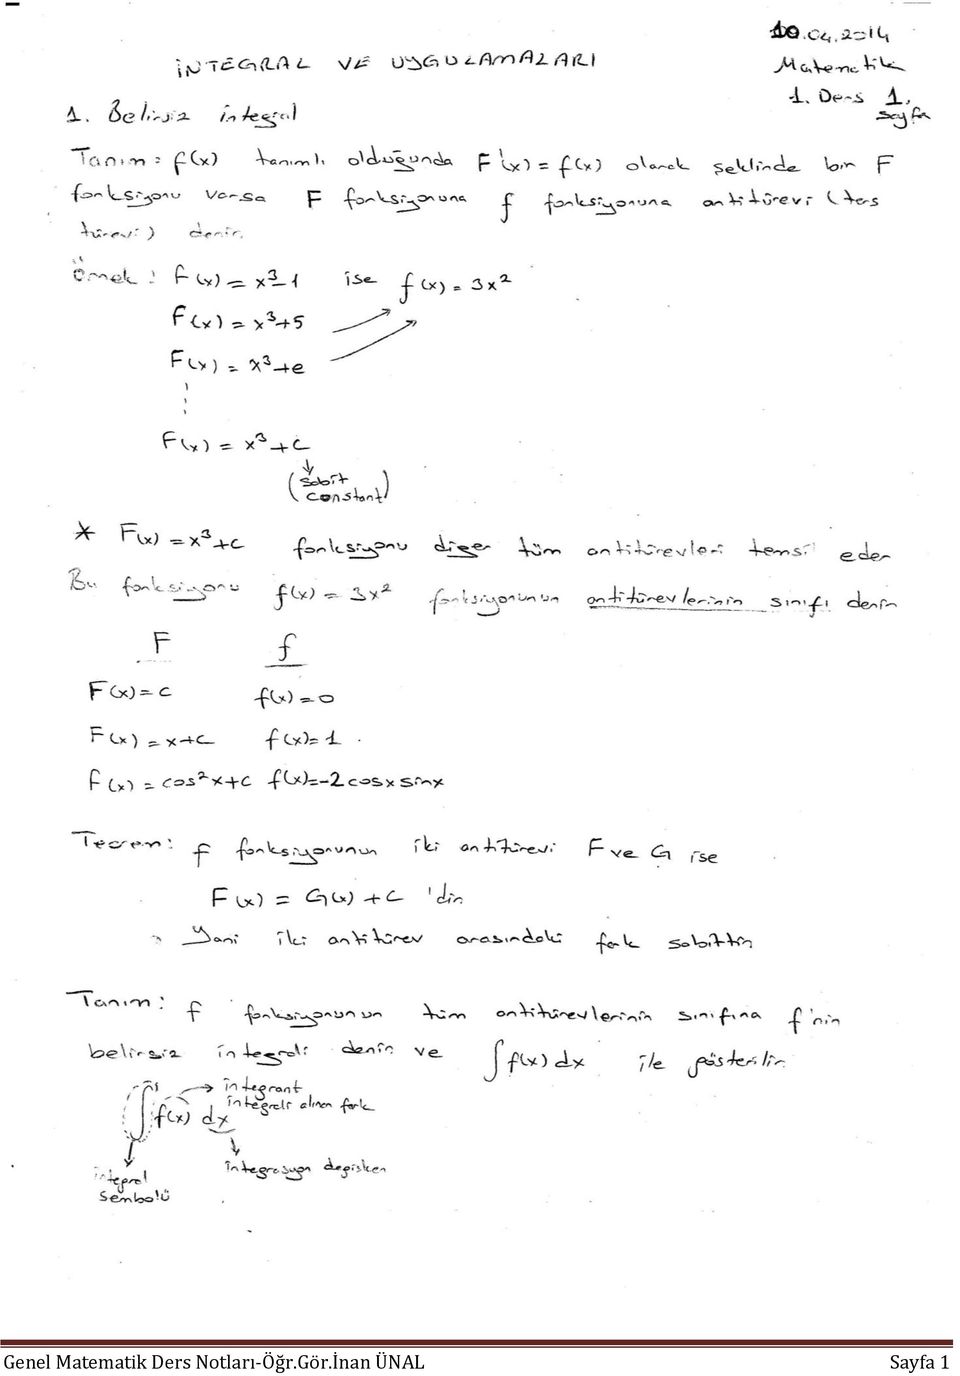 10.04.2014
İNTEGRAL VE UYGULAMALARI
Matematik
1. Ders 1.
sayfa
1. Belirsiz integral
Tanım: f(x) tanımlı olduğunda F'(x) = f(x) olarak şeklinde bir F
fonksiyonu varsa F fonksiyonuna f fonksiyonuna antitürevi (ters
türevi) denir.
Örnek: F(x) = x³-1 ise f(x) = 3x²
F(x) = x³+5
F(x) = x³+e
F(x) = x³+c
(sabit
constant)
* F(x) = x³+c fonksiyonu diğer tüm antitürevleri temsil eder
Bu fonksiyonu f(x) = 3x² fonksiyonunun antitürevlerinin sınıfı denir
F f
F(x) = c f(x) = 0
F(x) = x+c f(x) = 1
F(x) = cos²x+c f(x) = -2cosx sinx
Teorem: f fonksiyonunun iki antitürevi F ve G ise
F(x) = G(x) + c 'dir
Yani iki antitürev arasındaki fark sabittir
Tanım: f fonksiyonunun tüm antitürevlerinin sınıfına f'nin
belirsiz integrali denir ve ∫f(x) dx ile gösterilir
integrant
integrali alınan fonk
∫f(x) dx
integral
sembolü
integrasyon değişken
Genel Matematik Ders Notları-Öğr.Gör.İnan ÜNAL Sayfa 1